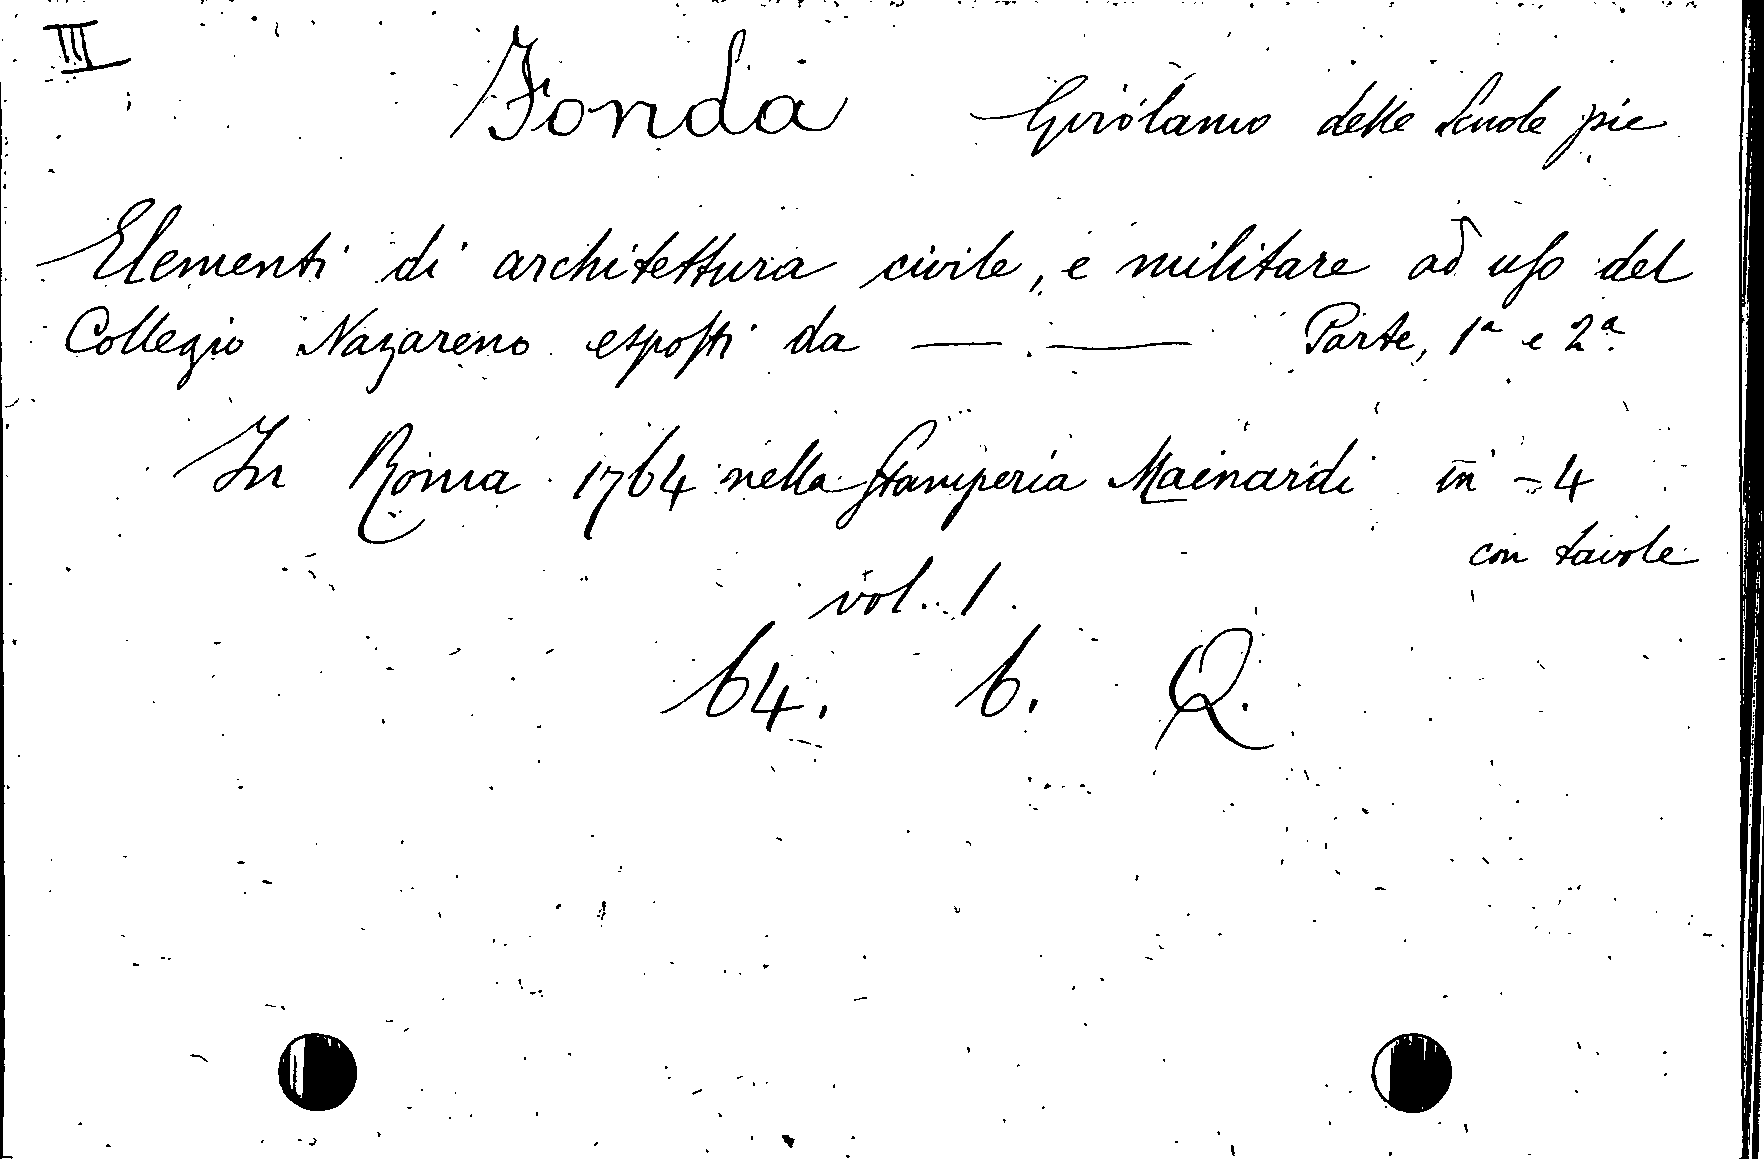 III
Fonda Girolamo delle Scuole pie
Elementi di architettura civile, e militare ad uſo del
Collegio Nazareno espoſti da — . — Parte, 1ª e 2ª.
In Roma 1764 nella ſtamperia Mainardi in - 4
con tavole
vol. 1.
64. 6. Q.